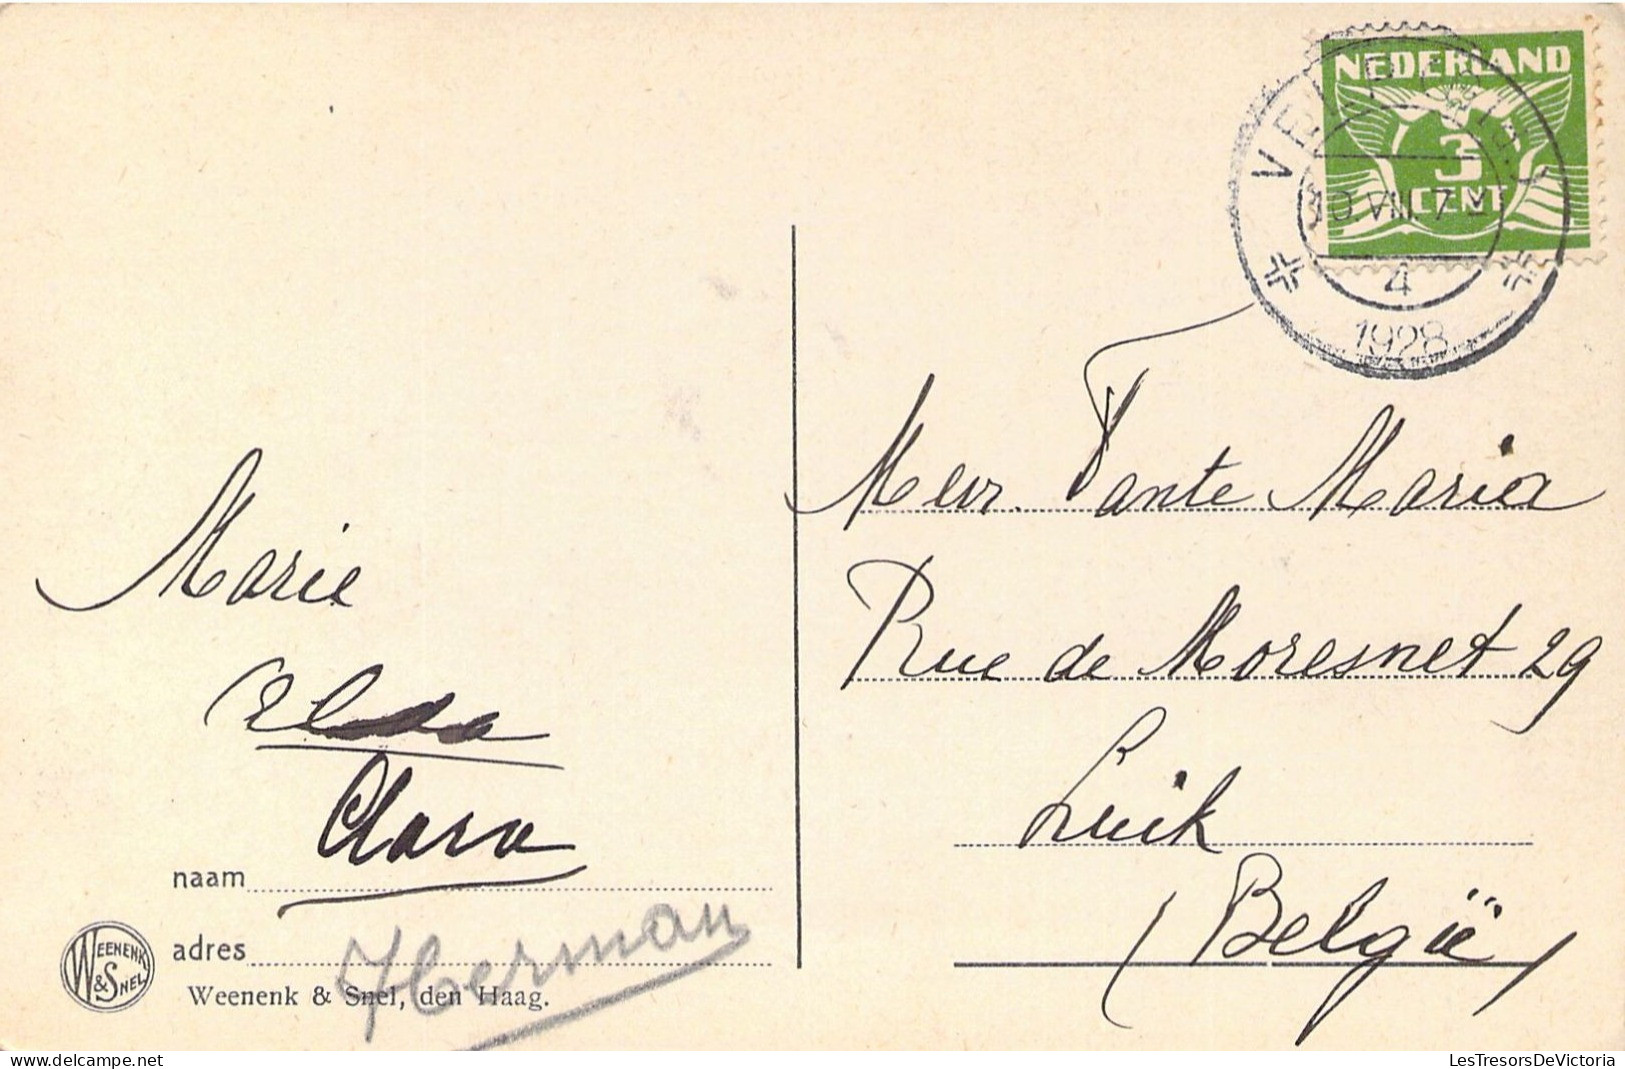 NEDERLAND
3
CENT
VELP (GLD.)
10.VIII.7
4
1928
Mevr. Tante Maria
Rue de Moresnet 29
Luik
(België)
Marie
Elsa
Clara
naam
Herman
adres
WEENENK
& SNEL
Weenenk & Snel, den Haag.
delcampe.net
LesTresorsDeVictoria